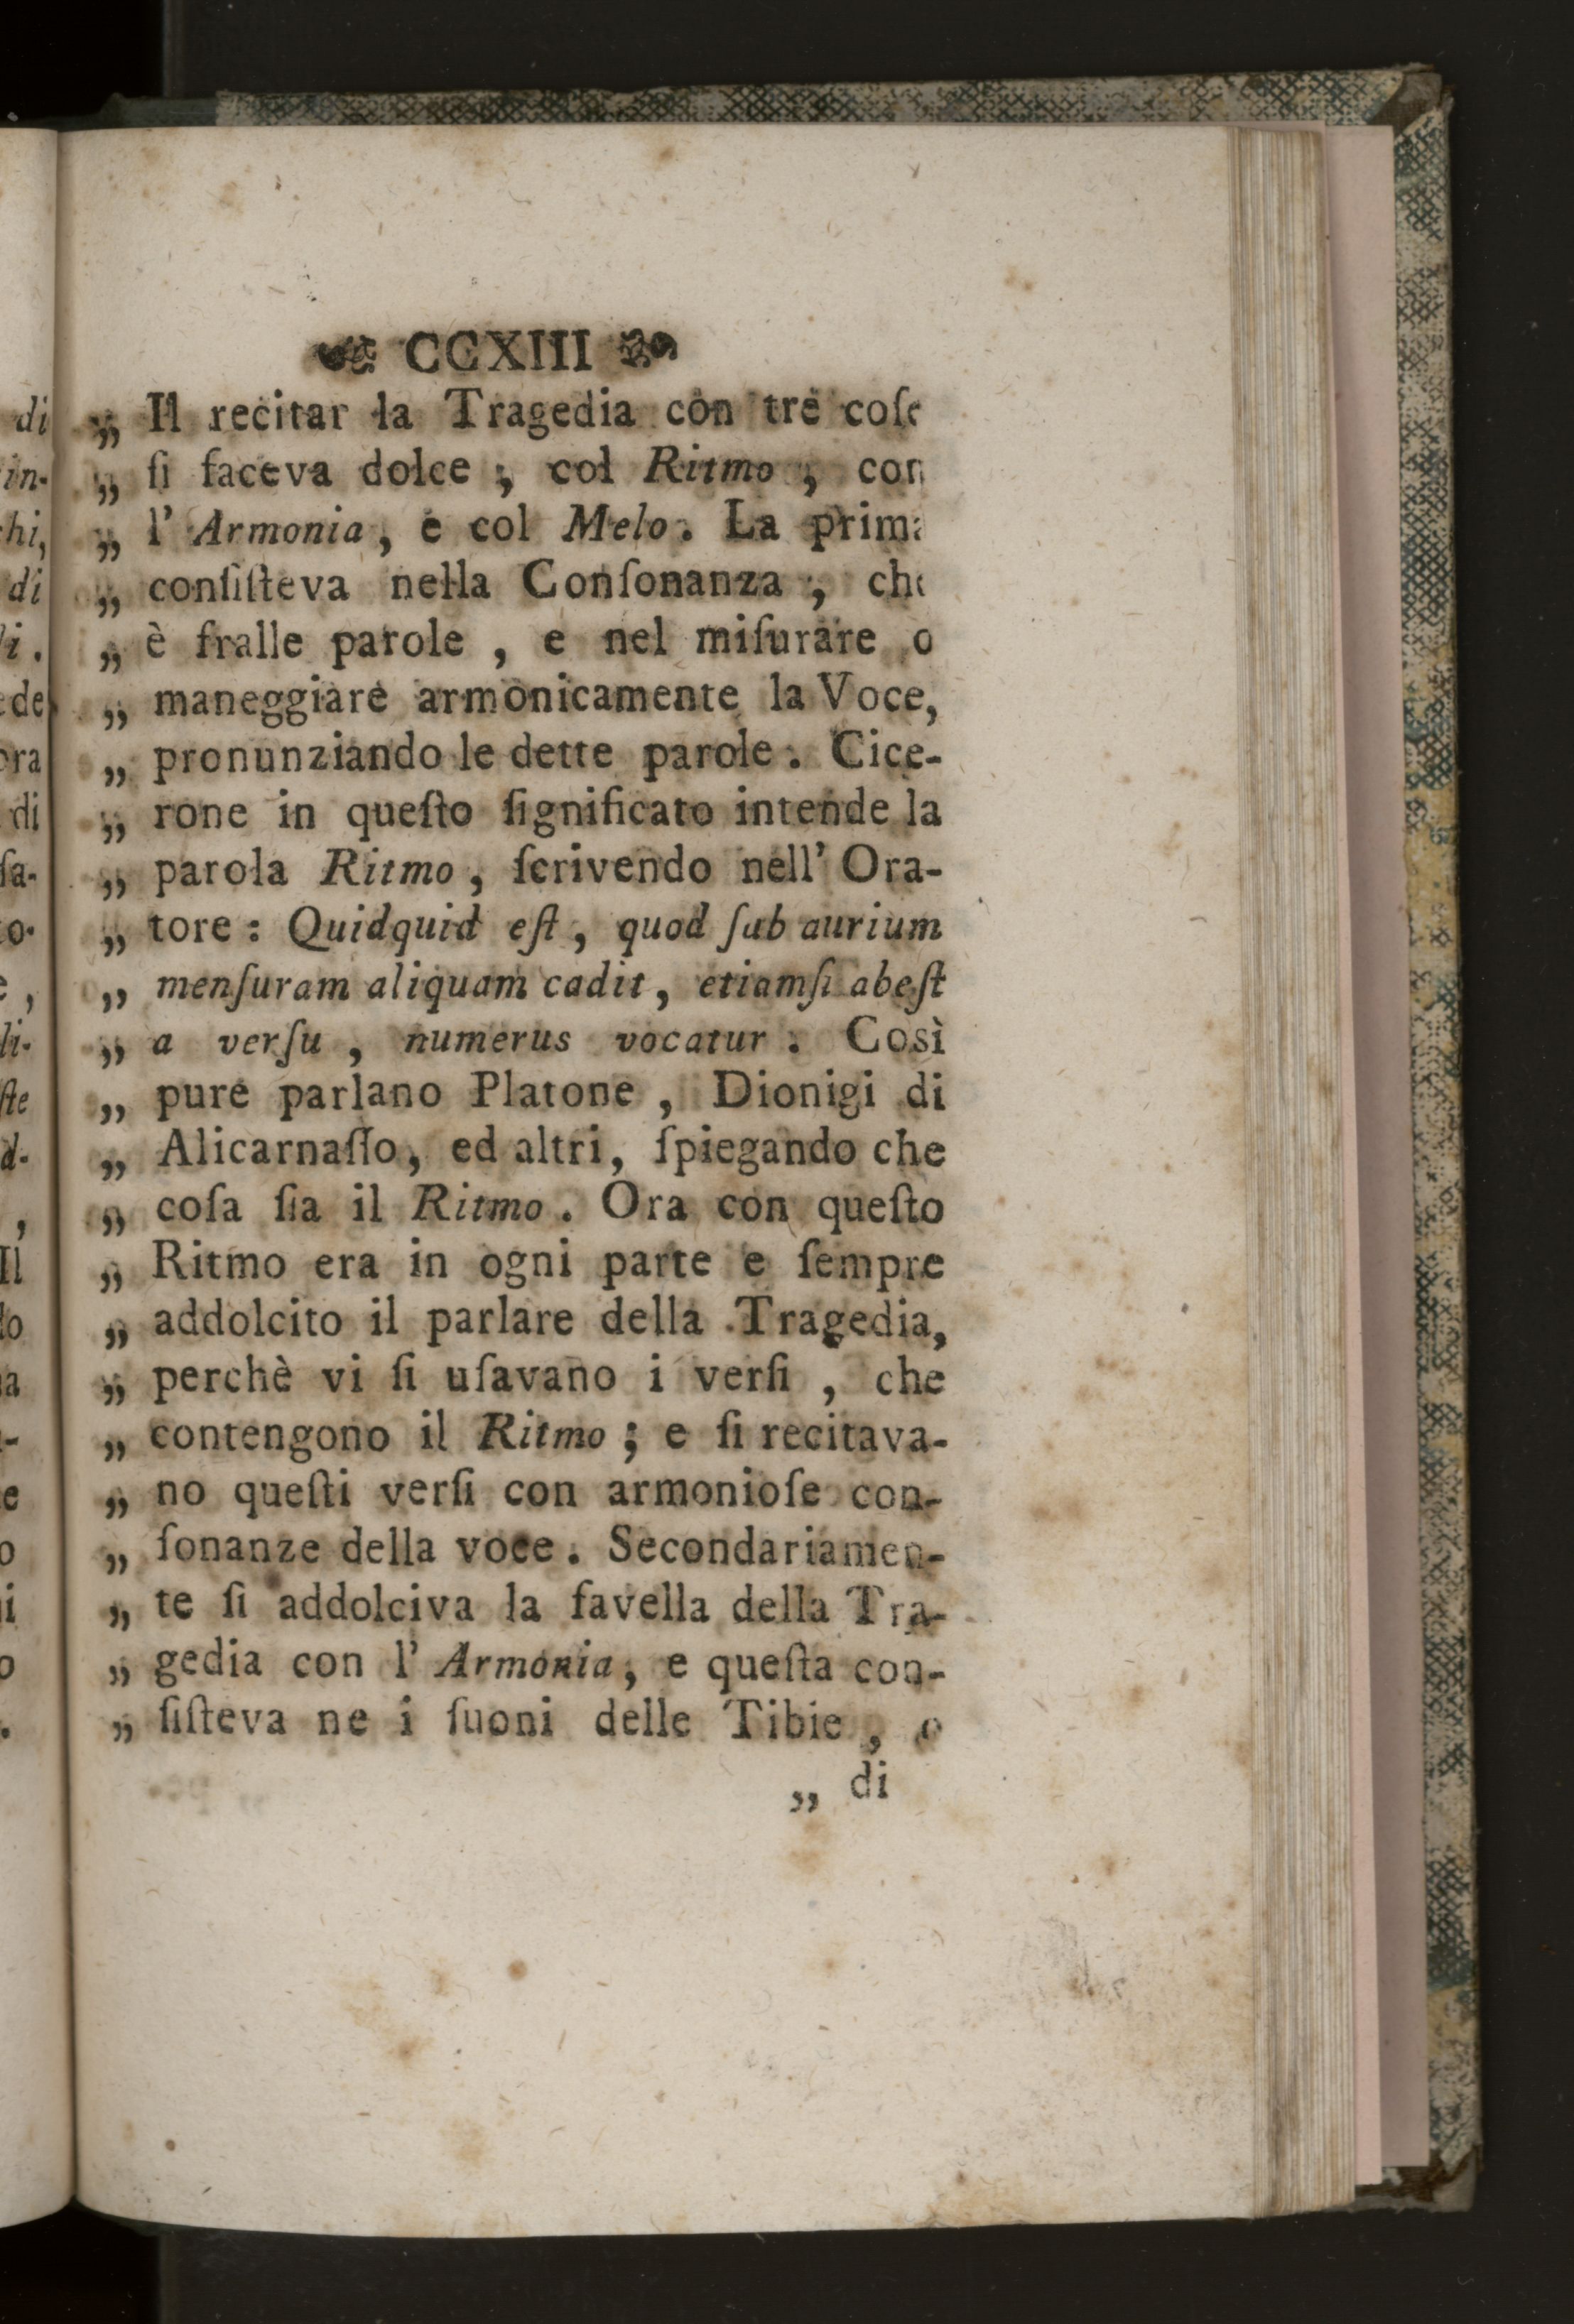 CCXIII
„ Il recitar la Tragedia con tre coſe
„ ſi faceva dolce ; col Ritmo , con
„ l' Armonia , e col Melo . La prima
„ conſiſteva nella Conſonanza , che
„ è fralle parole , e nel miſurare o
„ maneggiare armonicamente la Voce,
„ pronunziando le dette parole . Cice-
„ rone in queſto ſignificato intende la
„ parola Ritmo , ſcrivendo nell' Ora-
„ tore : Quidquid eſt , quod ſub aurium
„ menſuram aliquam cadit , etiamſi abeſt
„ a verſu , numerus vocatur . Così
„ pure parlano Platone , Dionigi di
„ Alicarnaſſo, ed altri, ſpiegando che
„ coſa ſia il Ritmo . Ora con queſto
„ Ritmo era in ogni parte e ſempre
„ addolcito il parlare della Tragedia,
„ perchè vi ſi uſavano i verſi , che
„ contengono il Ritmo ; e ſi recitava-
„ no queſti verſi con armonioſe con-
„ ſonanze della voce . Secondariamen-
„ te ſi addolciva la favella della Tra-
„ gedia con l' Armonia , e queſta con-
„ ſiſteva ne i ſuoni delle Tibie , o
„ di